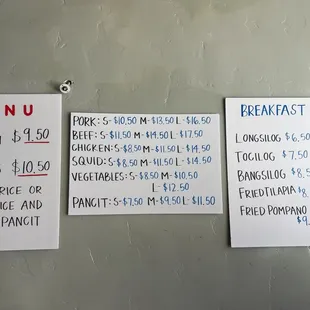 NU
$9.50
$10.50
RICE OR
ICE AND
PANCIT
PORK: S-$10.50 M-$13.50 L-$16.50
BEEF: S-$11.50 M-$14.50 L-$17.50
CHICKEN: S-$8.50 M-$11.50 L-$14.50
SQUID: S-$8.50 M-$11.50 L-$14.50
VEGETABLES: S-$8.50 M-$10.50
L-$12.50
PANCIT: S-$7.50 M-$9.50 L-$11.50
BREAKFAST
LONGSILOG $6.50
TOGILOG $7.50
BANGSILOG $8.5
FRIED TILAPIA $8.
FRIED POMPANO
$9